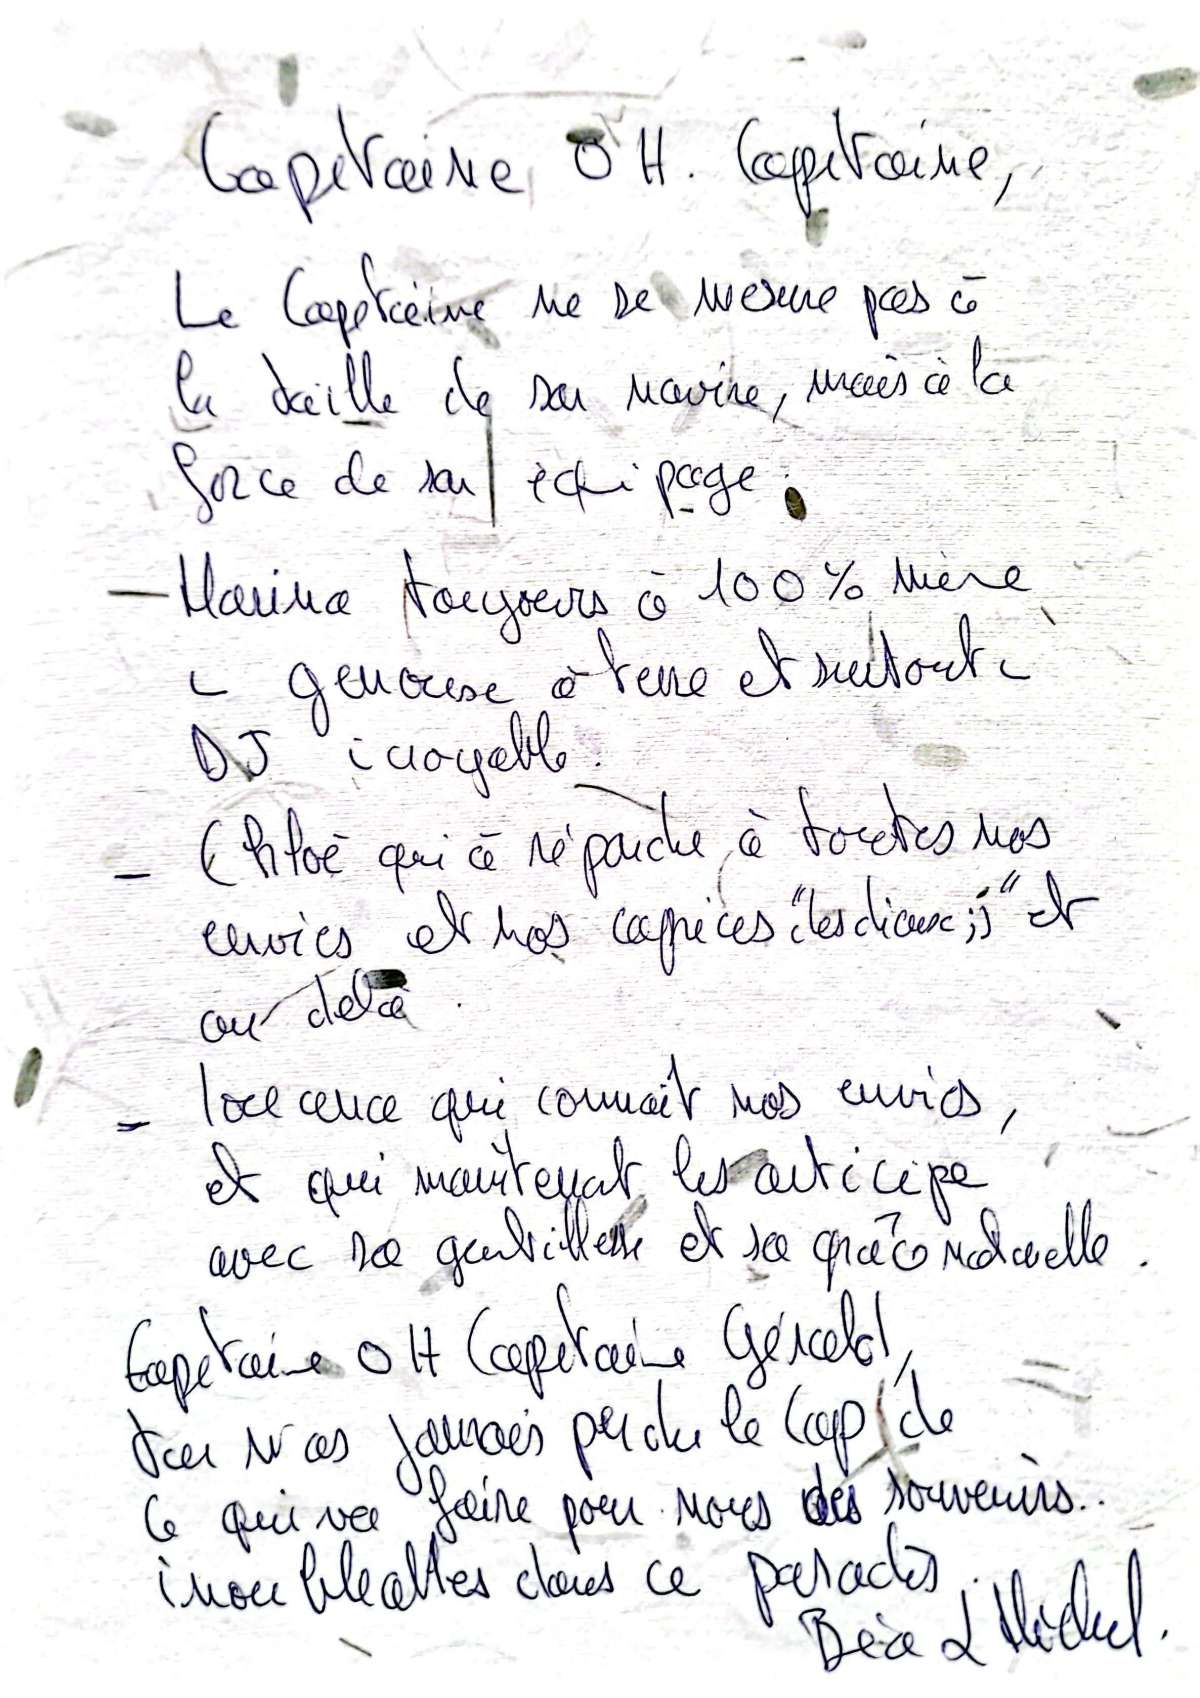 Capitaine OH. Capitaine,
Le Capitaine ne se mesure pas à
la taille de son navire, mais à la
force de son équipage.
- Marina toujours à 100% mère
à terre et surtout
DJ incroyable.
- Chloé qui à répondu à toutes nos
envies et nos caprices "les dieux ;;" et
au delà.
- qui connaît nos envies,
et qui maintenat les anticipe
avec sa gentillesse et sa naturelle.
Capitaine OH Capitaine Gérald,
tu n'as jamais perdu le Cap de
ce qui va faire pour nous des souvenirs..
inoubliables dans ce paradis.
Béa & Michel.